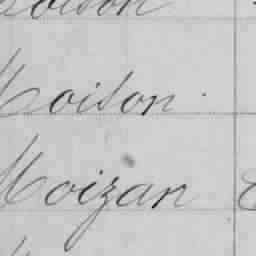 Moison
Moison
Moizan